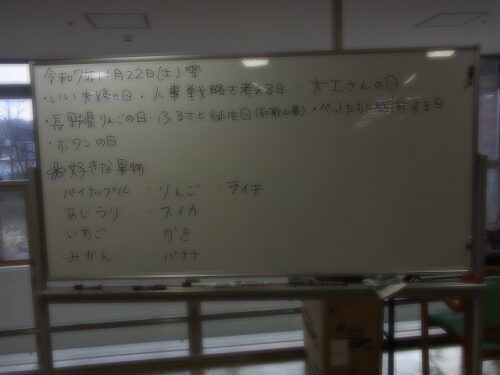 令和7年11月22日(土)
・いい夫婦の日・人事戦略を考える日・大工さんの日
・長野県りんごの日・ふるさと誕生日(和歌山県)・ペットたちに感謝する日
・ボタンの日
好きな果物
・パイナップル ・りんご ・ライチ
あじうり ・スイカ
・いちご ・かき
・みかん ・バナナ